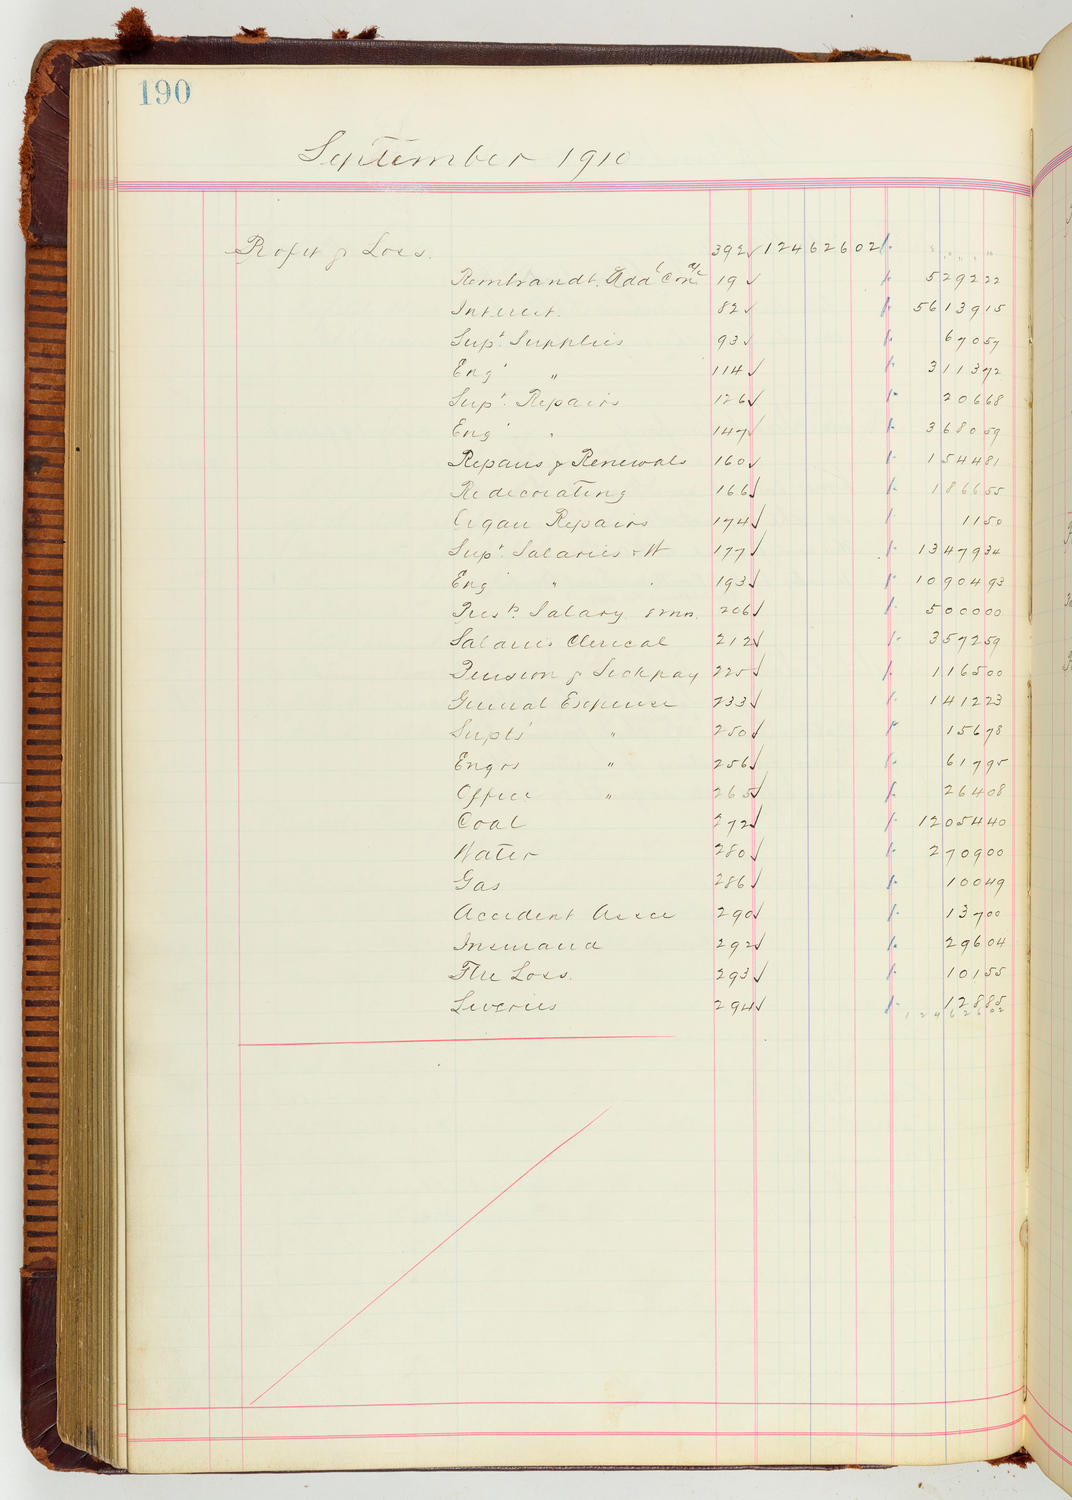 190
September 1910
Profit & Loss. 392 ✓ 12462602
Rembrandt. Add'l Con. a/c 19 ✓ 529222
Interest. 82 ✓ 5613915
Supt. Supplies 93 ✓ 67057
Eng' " 114 ✓ 311372
Supt. Repairs 126 ✓ 20668
Eng' " 147 ✓ 368059
Repairs & Renewals 160 ✓ 154481
Redecorating 166 ✓ 186655
Organ Repairs 174 ✓ 1150
Supt. Salaries & W 177 ✓ 1347934
Eng' " 193 ✓ 1090493
Prest's Salary 206 ✓ 500000
Salaries Clerical 212 ✓ 357259
Pension & Sickpay 225 ✓ 116500
General Expense 233 ✓ 141223
Supts' " 250 ✓ 15678
Engrs " 256 ✓ 61795
Office " 265 ✓ 26408
Coal 272 ✓ 1205440
Water 280 ✓ 270900
Gas 286 ✓ 10049
Accident Assce 290 ✓ 13700
Insurance 292 ✓ 29604
Fire Loss. 293 ✓ 10155
Liveries 294 ✓ 12885
12462602